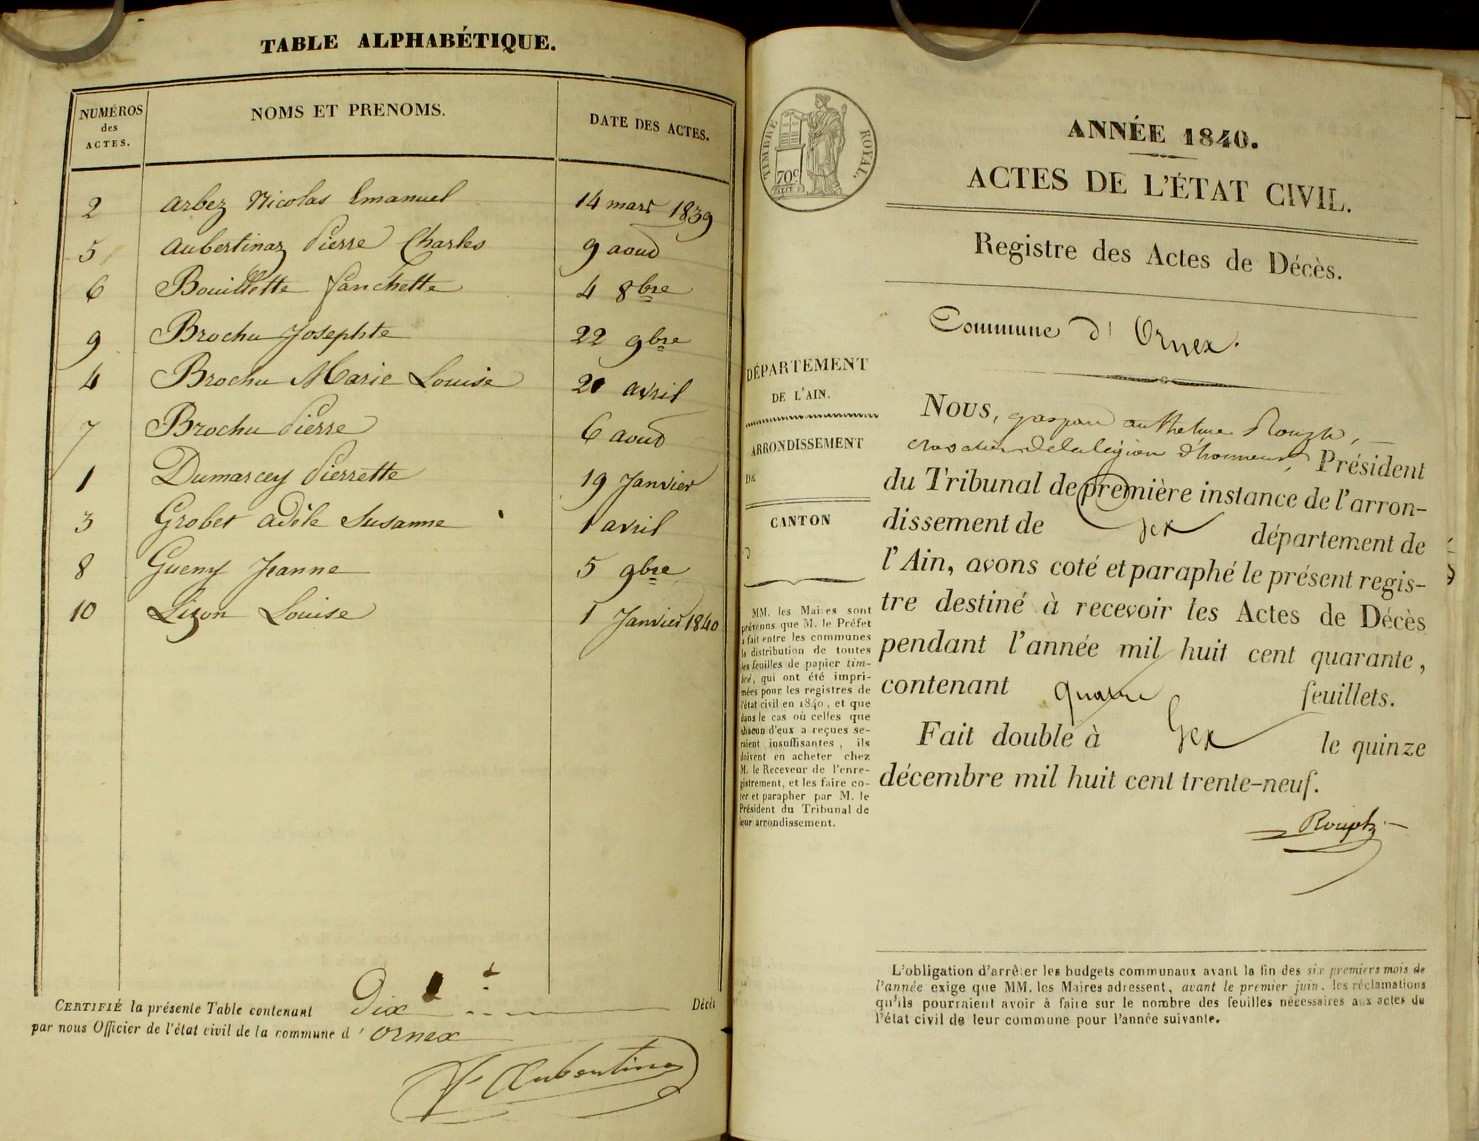 TABLE ALPHABÉTIQUE.
NUMÉROS des ACTES. NOMS ET PRENOMS. DATE DES ACTES.
2 Arbez Nicolas Emanuel 14 mars 1839
5 Aubertinaz Pierre Charles 9 aoud
6 Bouillette fanchette 4 8bre
9 Brochu Josephte 22 9bre
4 Brochu Marie Louise 21 avril
7 Brochu Pierre 6 aoud
1 Dumarcey Pierrette 19 Janvier
3 Grobet adèle Susanne 1 avril
8 Gueny Jeanne 5 9bre
10 Lizon Louise 1 Janvier 1840
CERTIFIÉ la présente Table contenant Dix Décès
par nous Officier de l'état civil de la commune d'Ornex
Aubertinaz
TIMBRE ROYAL.
70c
ANNÉE 1840.
ACTES DE L'ÉTAT CIVIL.
Registre des Actes de Décès.
Commune d'Ornex.
DÉPARTEMENT
DE L'AIN.
ARRONDISSEMENT
DE
CANTON
D
MM. les Maires sont
prévenus que M. le Préfet
a fait entre les communes
la distribution de toutes
les feuilles de papier tim-
bré, qui ont été impri-
mées pour les registres de
l'état civil en 1840, et que
dans le cas où celles que
chacun d'eux a reçues se-
raient insuffisantes, ils
doivent en acheter chez
M. le Receveur de l'enre-
gistrement, et les faire co-
ter et parapher par M. le
Président du Tribunal de
leur arrondissement.
NOUS, gaspard anthelme
de la légion d'honneur, Président
du Tribunal de première instance de l'arron-
dissement de Gex département de
l'Ain, avons coté et paraphé le présent regis-
tre destiné à recevoir les Actes de Décès
pendant l'année mil huit cent quarante,
contenant quatre feuillets.
Fait double à Gex le quinze
décembre mil huit cent trente-neuf.
L'obligation d'arrêter les budgets communaux avant la fin des six premiers mois de
l'année exige que MM. les Maires adressent, avant le premier juin, les réclamations
qu'ils pourraient avoir à faire sur le nombre des feuilles nécessaires aux actes de
l'état civil de leur commune pour l'année suivante.